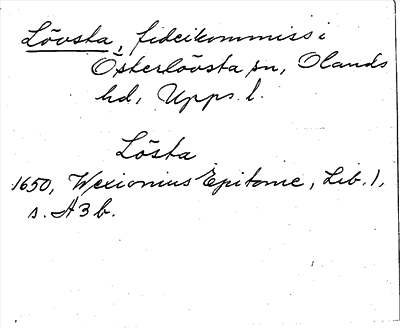 Lövsta, fideikommiss i
Österlövsta sn, Olands
hd, Upps. l.
Lösta
1650, Wexionius Epitome, Lib. 1,
s. A3 b.